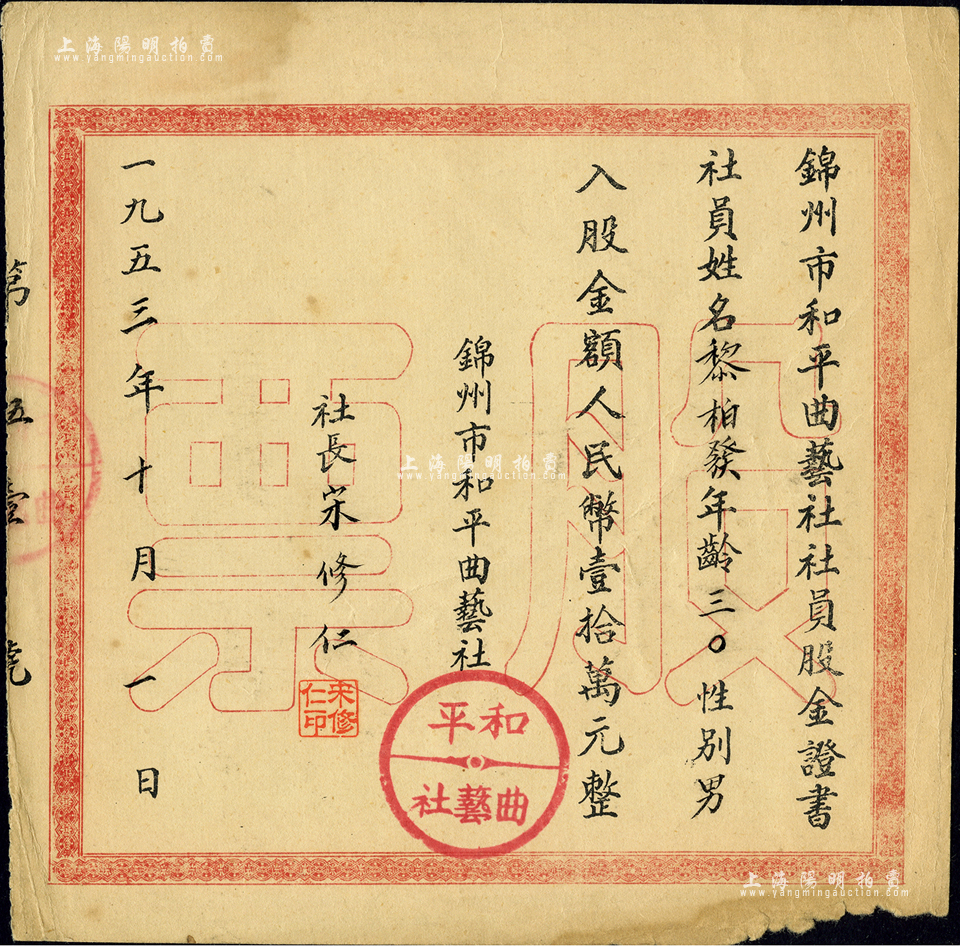 錦州市和平曲藝社社員股金證書
社員姓名黎柏發年齡三〇性別男
入股金額人民幣壹拾萬元整
錦州市和平曲藝社
社長宋修仁
一九五三年十月一日
第伍壹號
股票
和平
曲藝社
宋修仁印
上海陽明拍賣
www.yangmingauction.com
上海陽明拍賣
www.yangmingauction.com
上海陽明拍賣
www.yangmingauction.com